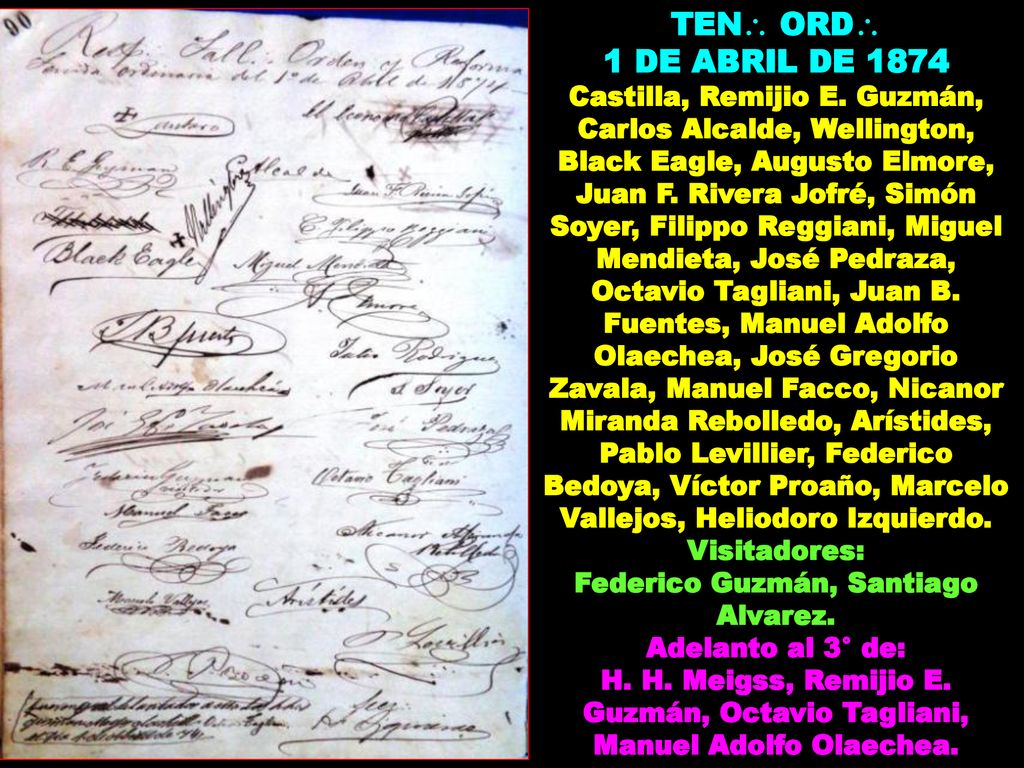 90
Resp. Tall. Orden y Reforma
Tenida ordinaria del 1º de Abril de 1874
Lautaro
R. E. Guzman
C. Alcalde
Wellington
Juan F. Rivera Jofré
C. Filippo Reggiani
Black Eagle
Miguel Mendieta
A. Elmore
J B Fuentes
Julio Rodriguez
Manuel Adolfo Olaechea
S Soyer
José Gº Zavala
José Pedraza
Federico Guzman
visitador
Octavio Tagliani
Manuel Facco
Nicanor Miranda
Rebolledo
Federico Bedoya
Marcelo Vallejos
Arístides
P Levillier
H. Izquierdo
TEN∴ ORD∴
1 DE ABRIL DE 1874
Castilla, Remijio E. Guzmán,
Carlos Alcalde, Wellington,
Black Eagle, Augusto Elmore,
Juan F. Rivera Jofré, Simón
Soyer, Filippo Reggiani, Miguel
Mendieta, José Pedraza,
Octavio Tagliani, Juan B.
Fuentes, Manuel Adolfo
Olaechea, José Gregorio
Zavala, Manuel Facco, Nicanor
Miranda Rebolledo, Arístides,
Pablo Levillier, Federico
Bedoya, Víctor Proaño, Marcelo
Vallejos, Heliodoro Izquierdo.
Visitadores:
Federico Guzmán, Santiago
Alvarez.
Adelanto al 3° de:
H. H. Meigss, Remijio E.
Guzmán, Octavio Tagliani,
Manuel Adolfo Olaechea.